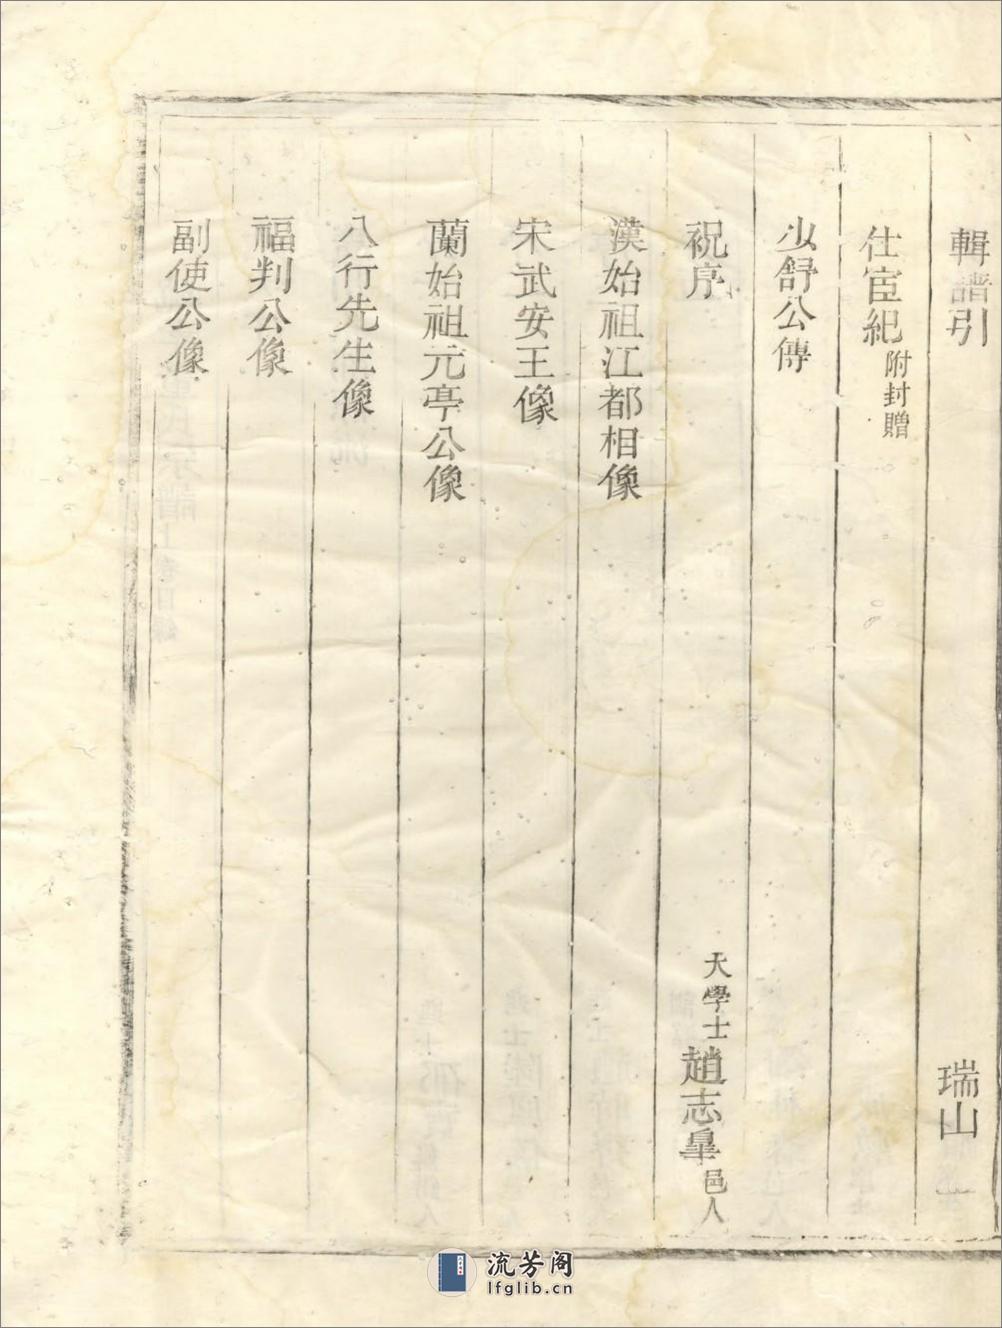 輯譜引 瑞山
仕宦紀 附封贈
少舒公傳
祝序 大學士 趙志臯 邑人
漢始祖江都相像
宋武安王像
蘭始祖元亭公像
八行先生像
福判公像
副使公像
流芳阁
lfglib.cn